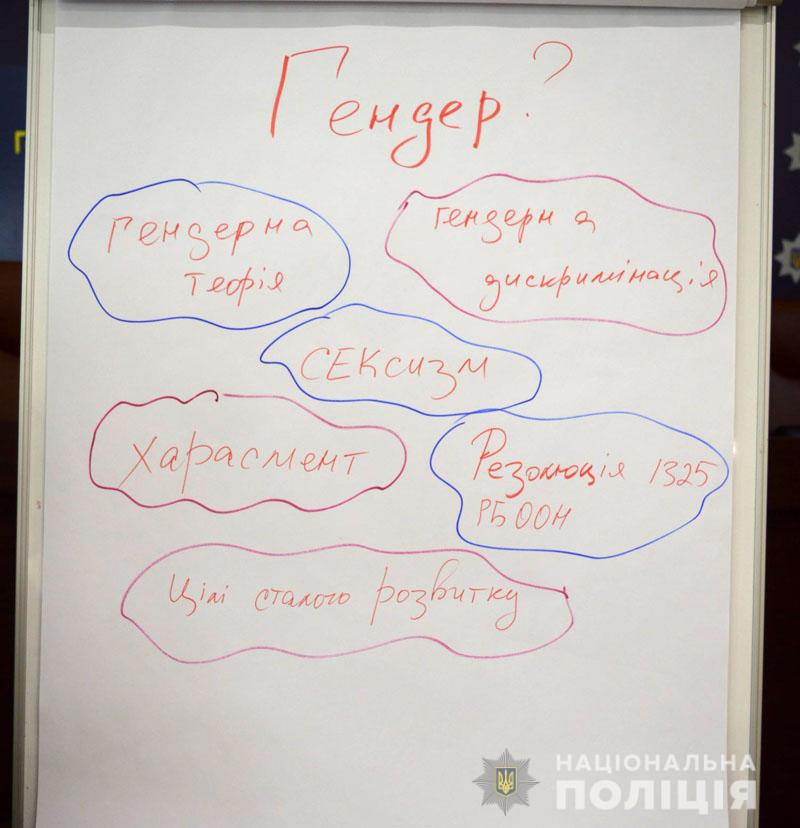 Гендер?
Гендерна
теорія
гендерна
дискримінація
СЕКсизм
Харасмент
Резолюція 1325
РБ ООН
Цілі сталого розвитку
НАЦІОНАЛЬНА
ПОЛІЦІЯ